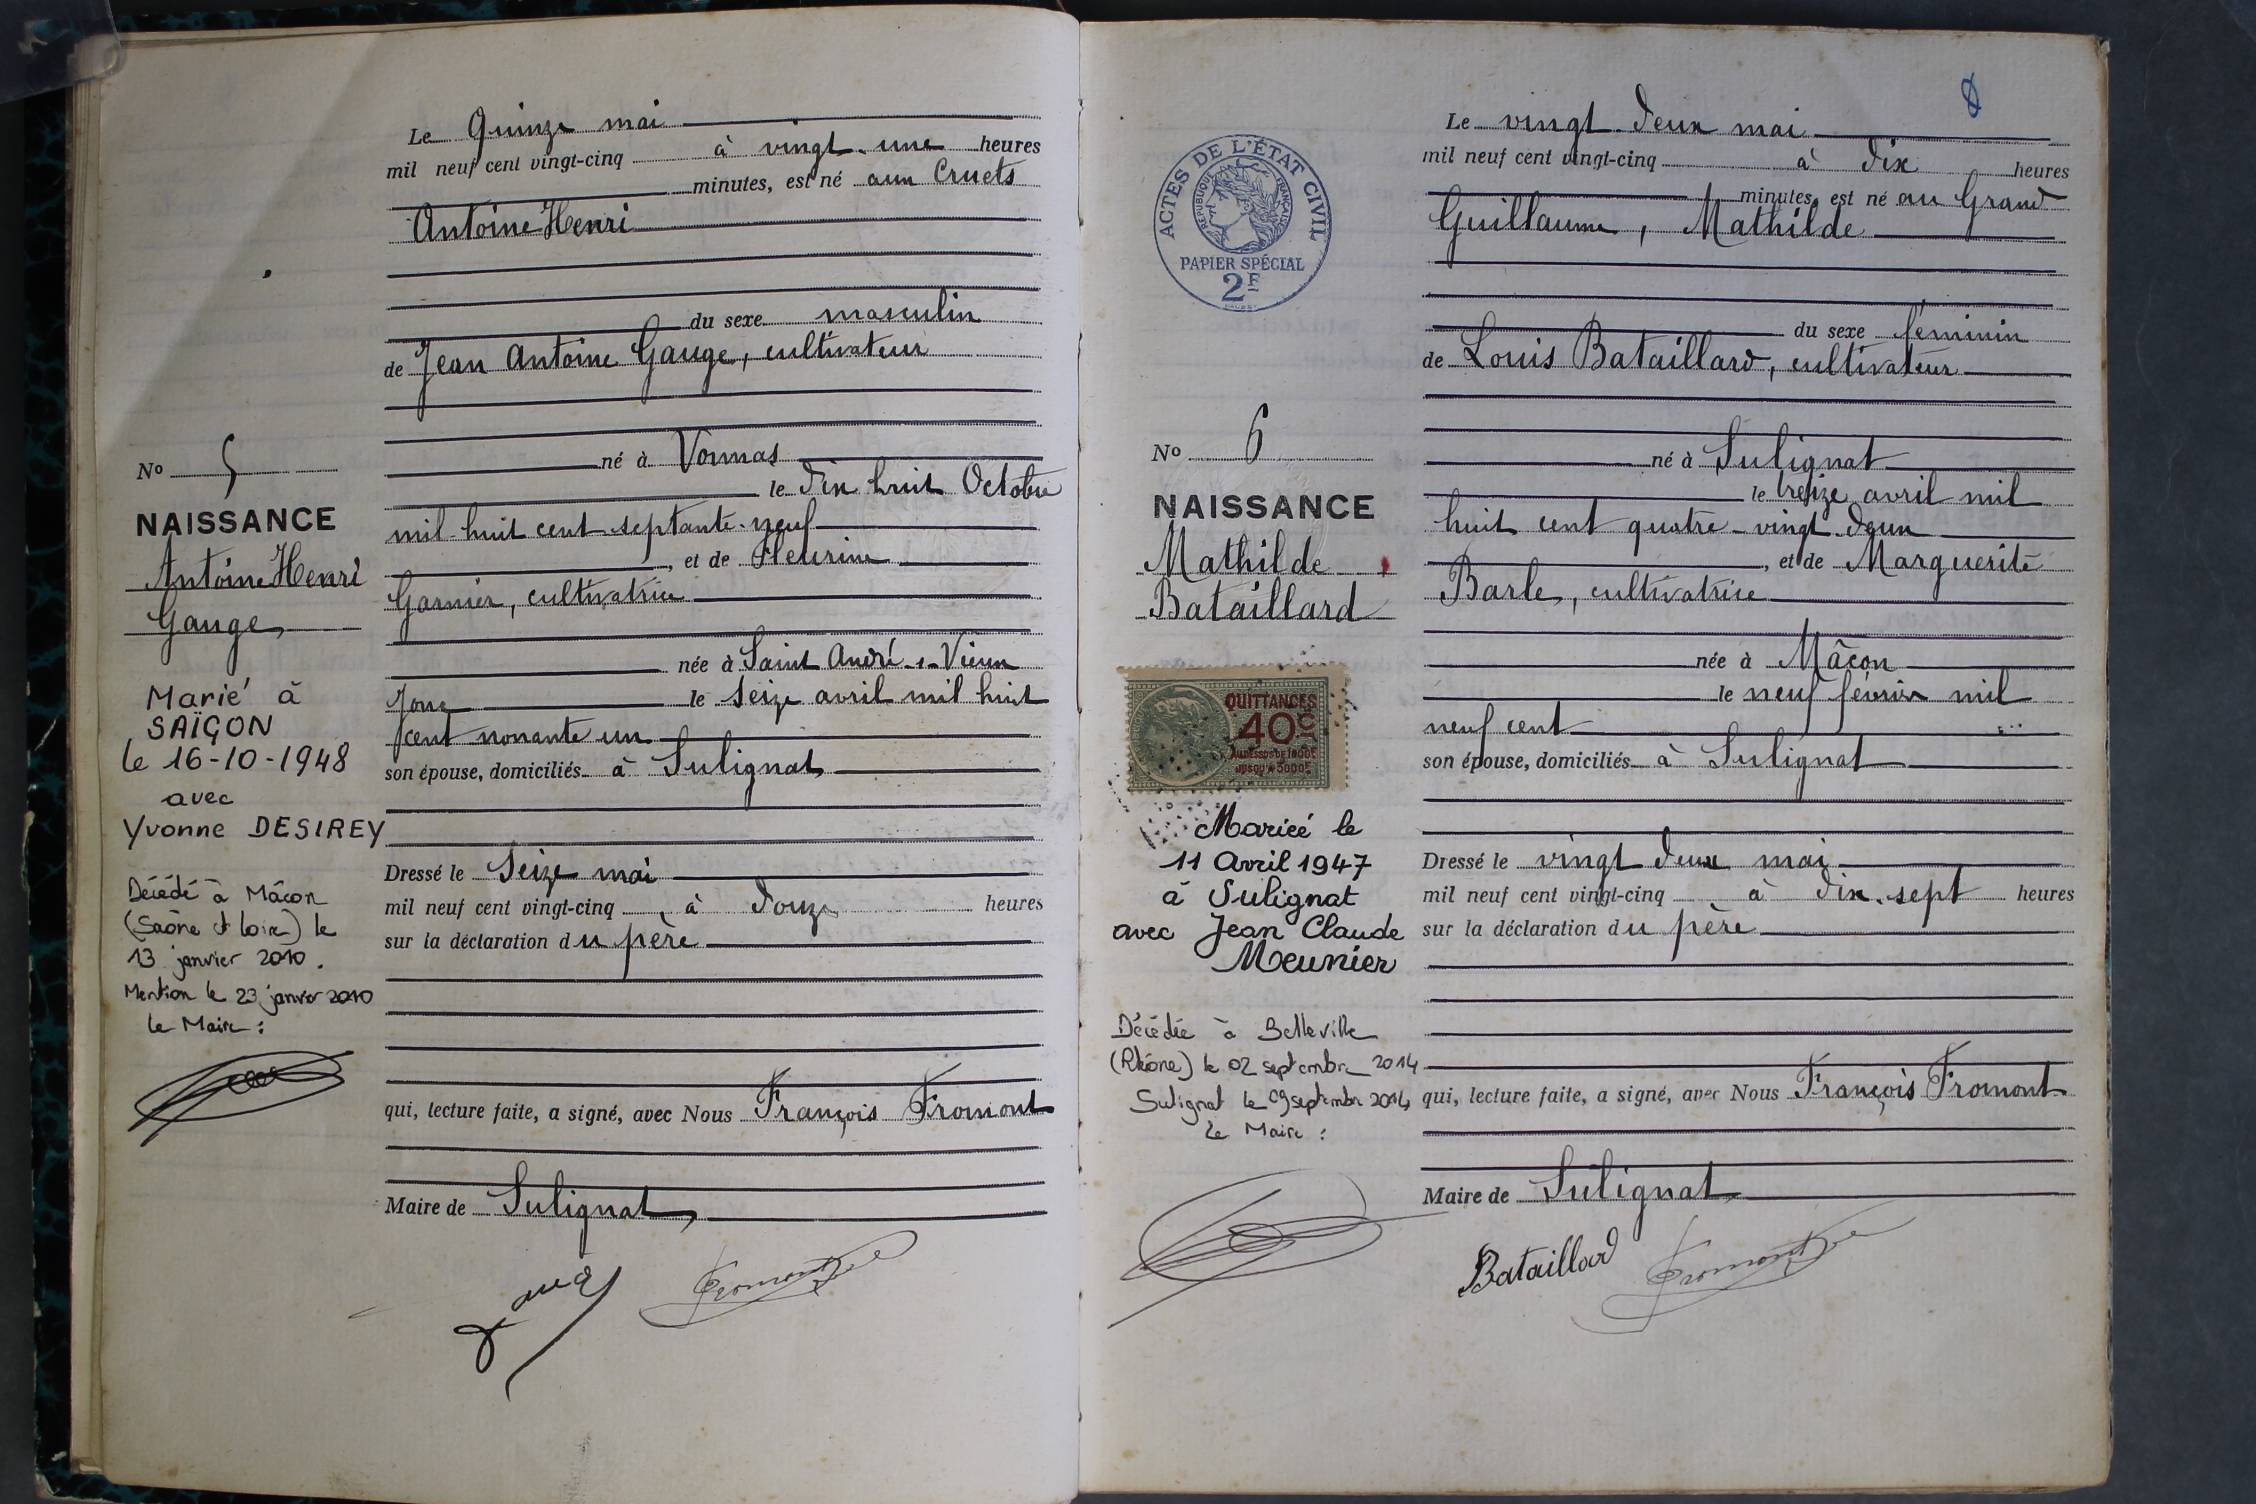 Le Quinze mai
mil neuf cent vingt-cinq à vingt-une heures
minutes, est né aux Cruets
Antoine Henri
du sexe masculin
de Jean Antoine Gauge, cultivateur
né à Vonnas
le dix huit Octobre
mil huit cent septante-neuf
, et de Fleurine
Garnier, cultivatrice
née à Saint André-s-Vieux
Jonc le seize avril mil huit
cent nonante un
son épouse, domiciliés à Sulignat
Dressé le Seize mai
mil neuf cent vingt-cinq à douze heures
sur la déclaration du père
qui, lecture faite, a signé, avec Nous François Fromont
Maire de Sulignat
No 5
NAISSANCE
Antoine Henri
Gauge
Marié à
SAÏGON
le 16-10-1948
avec
Yvonne DESIREY
Décédé à Mâcon
(Saône et Loire) le
13 janvier 2010.
Mention le 23 janvier 2010
le Maire :
Fromont
Le vingt-deux mai
mil neuf cent vingt-cinq à dix heures
minutes, est né au Grand
Guillaume, Mathilde
du sexe féminin
de Louis Bataillard, cultivateur
né à Sulignat
le treize avril mil
huit cent quatre-vingt-deux
, et de Marguerite
Barle, cultivatrice
née à Mâcon
le neuf février mil
neuf cent
son épouse, domiciliés à Sulignat
Dressé le vingt deux mai
mil neuf cent vingt-cinq à dix-sept heures
sur la déclaration du père
qui, lecture faite, a signé, avec Nous François Fromont
Maire de Sulignat
Bataillard Fromont
ACTES DE L'ÉTAT CIVIL
RÉPUBLIQUE FRANÇAISE
PAPIER SPÉCIAL
2F
No 6
NAISSANCE
Mathilde
Bataillard
QUITTANCES
40c
Mariée le
11 Avril 1947
à Sulignat
avec Jean Claude
Meunier
Décédée à Belleville
(Rhône) le 02 septembre 2014
Sulignat le 09 septembre 2014
Le Maire :